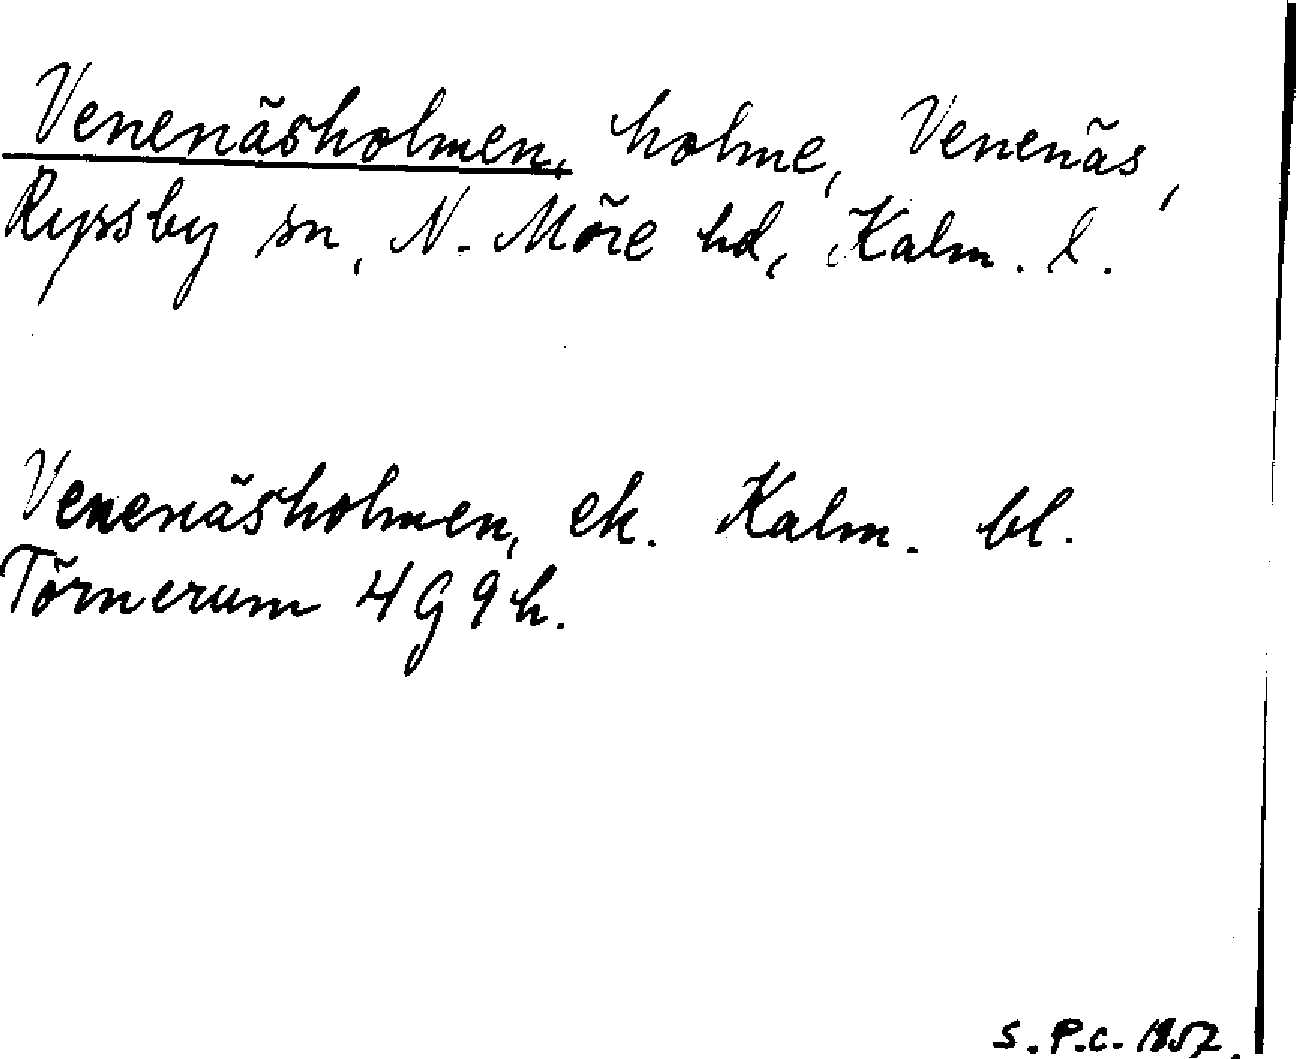 Venenäsholmen, holme, Venenäs,
Ryssby sn, N. Möre hd, Kalm. l.
Venenäsholmen, ek. Kalm. bl.
Törnerum 4G9h.
S.P.C. 1957.